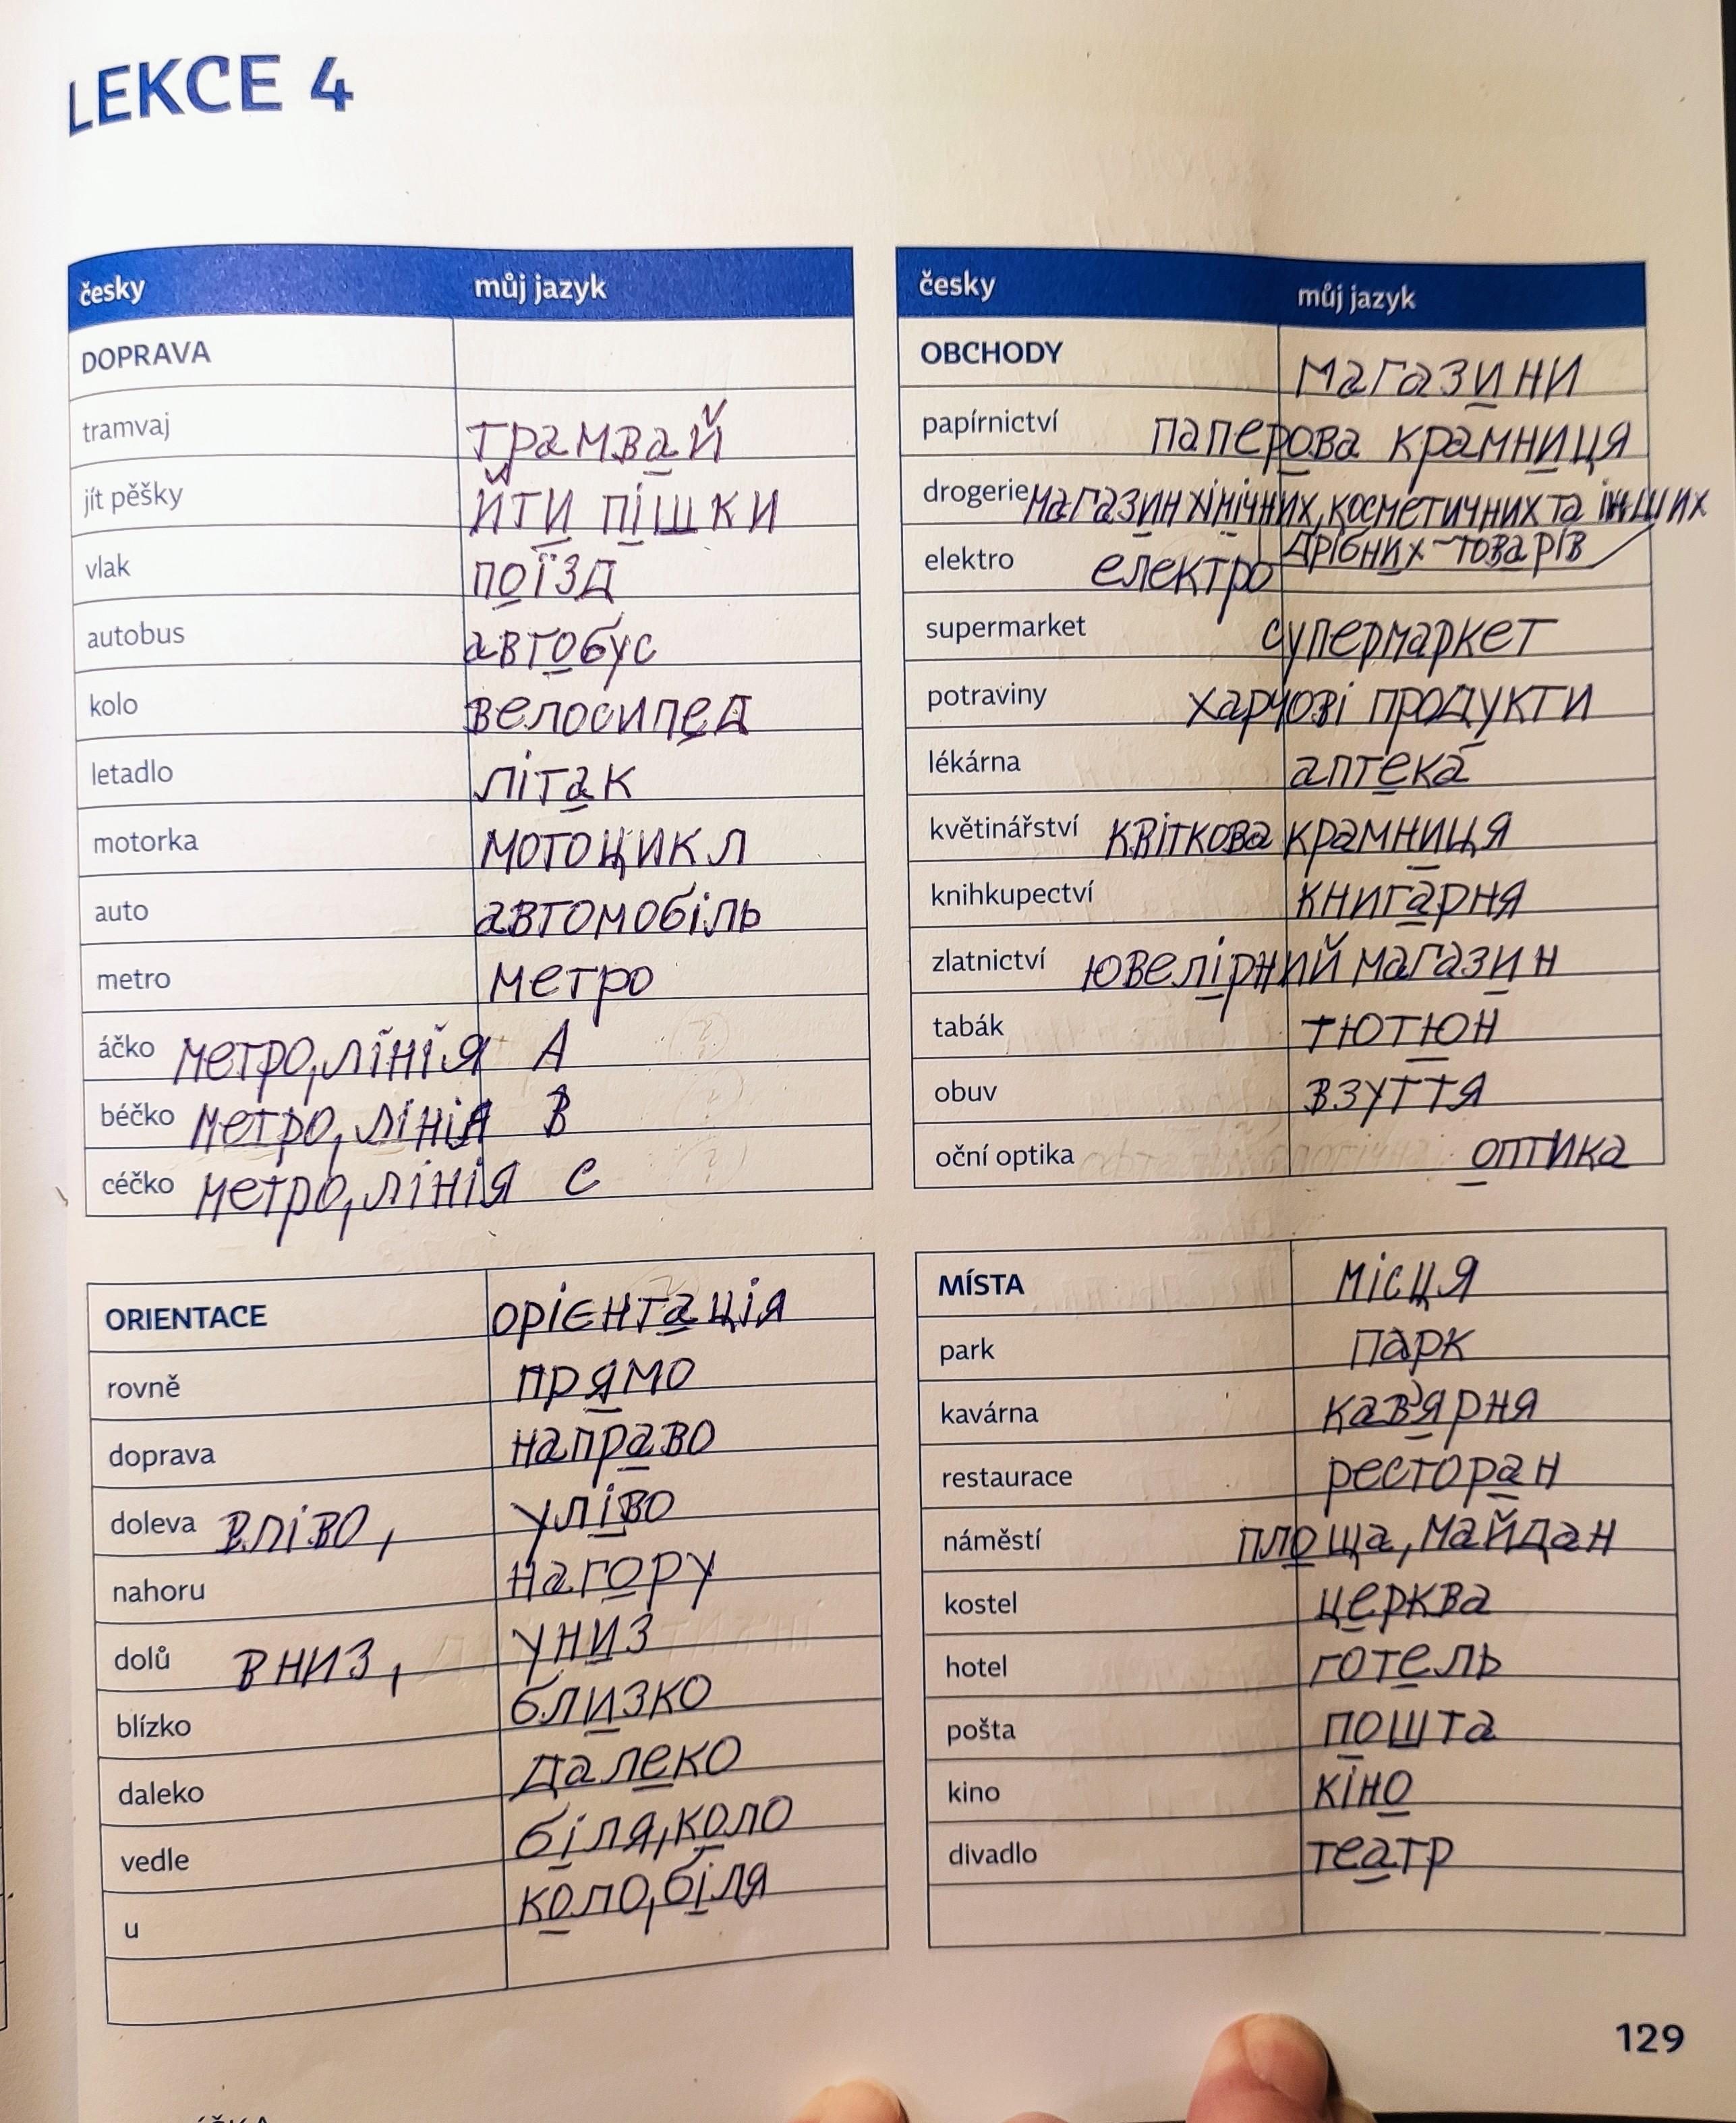 LEKCE 4
česky můj jazyk
DOPRAVA
tramvaj трамвай
jít pěšky йти пішки
vlak поїзд
autobus автобус
kolo велосипед
letadlo літак
motorka мотоцикл
auto автомобіль
metro метро
áčko метро, лінія А
béčko метро, лінія В
céčko метро, лінія С
česky můj jazyk
OBCHODY магазини
papírnictví паперова крамниця
drogerie магазин хімічних, косметичних та інших
дрібних товарів
elektro електро
supermarket супермаркет
potraviny харчові продукти
lékárna аптека
květinářství квіткова крамниця
knihkupectví книгарня
zlatnictví ювелірний магазин
tabák тютюн
obuv взуття
oční optika оптика
ORIENTACE орієнтація
rovně прямо
doprava направо
doleva вліво, уліво
nahoru нагору
dolů вниз, униз
blízko близко
daleko далеко
vedle біля, коло
u коло, біля
MÍSTA місця
park парк
kavárna кав'ярня
restaurace ресторан
náměstí площа, майдан
kostel церква
hotel готель
pošta пошта
kino кіно
divadlo театр
129